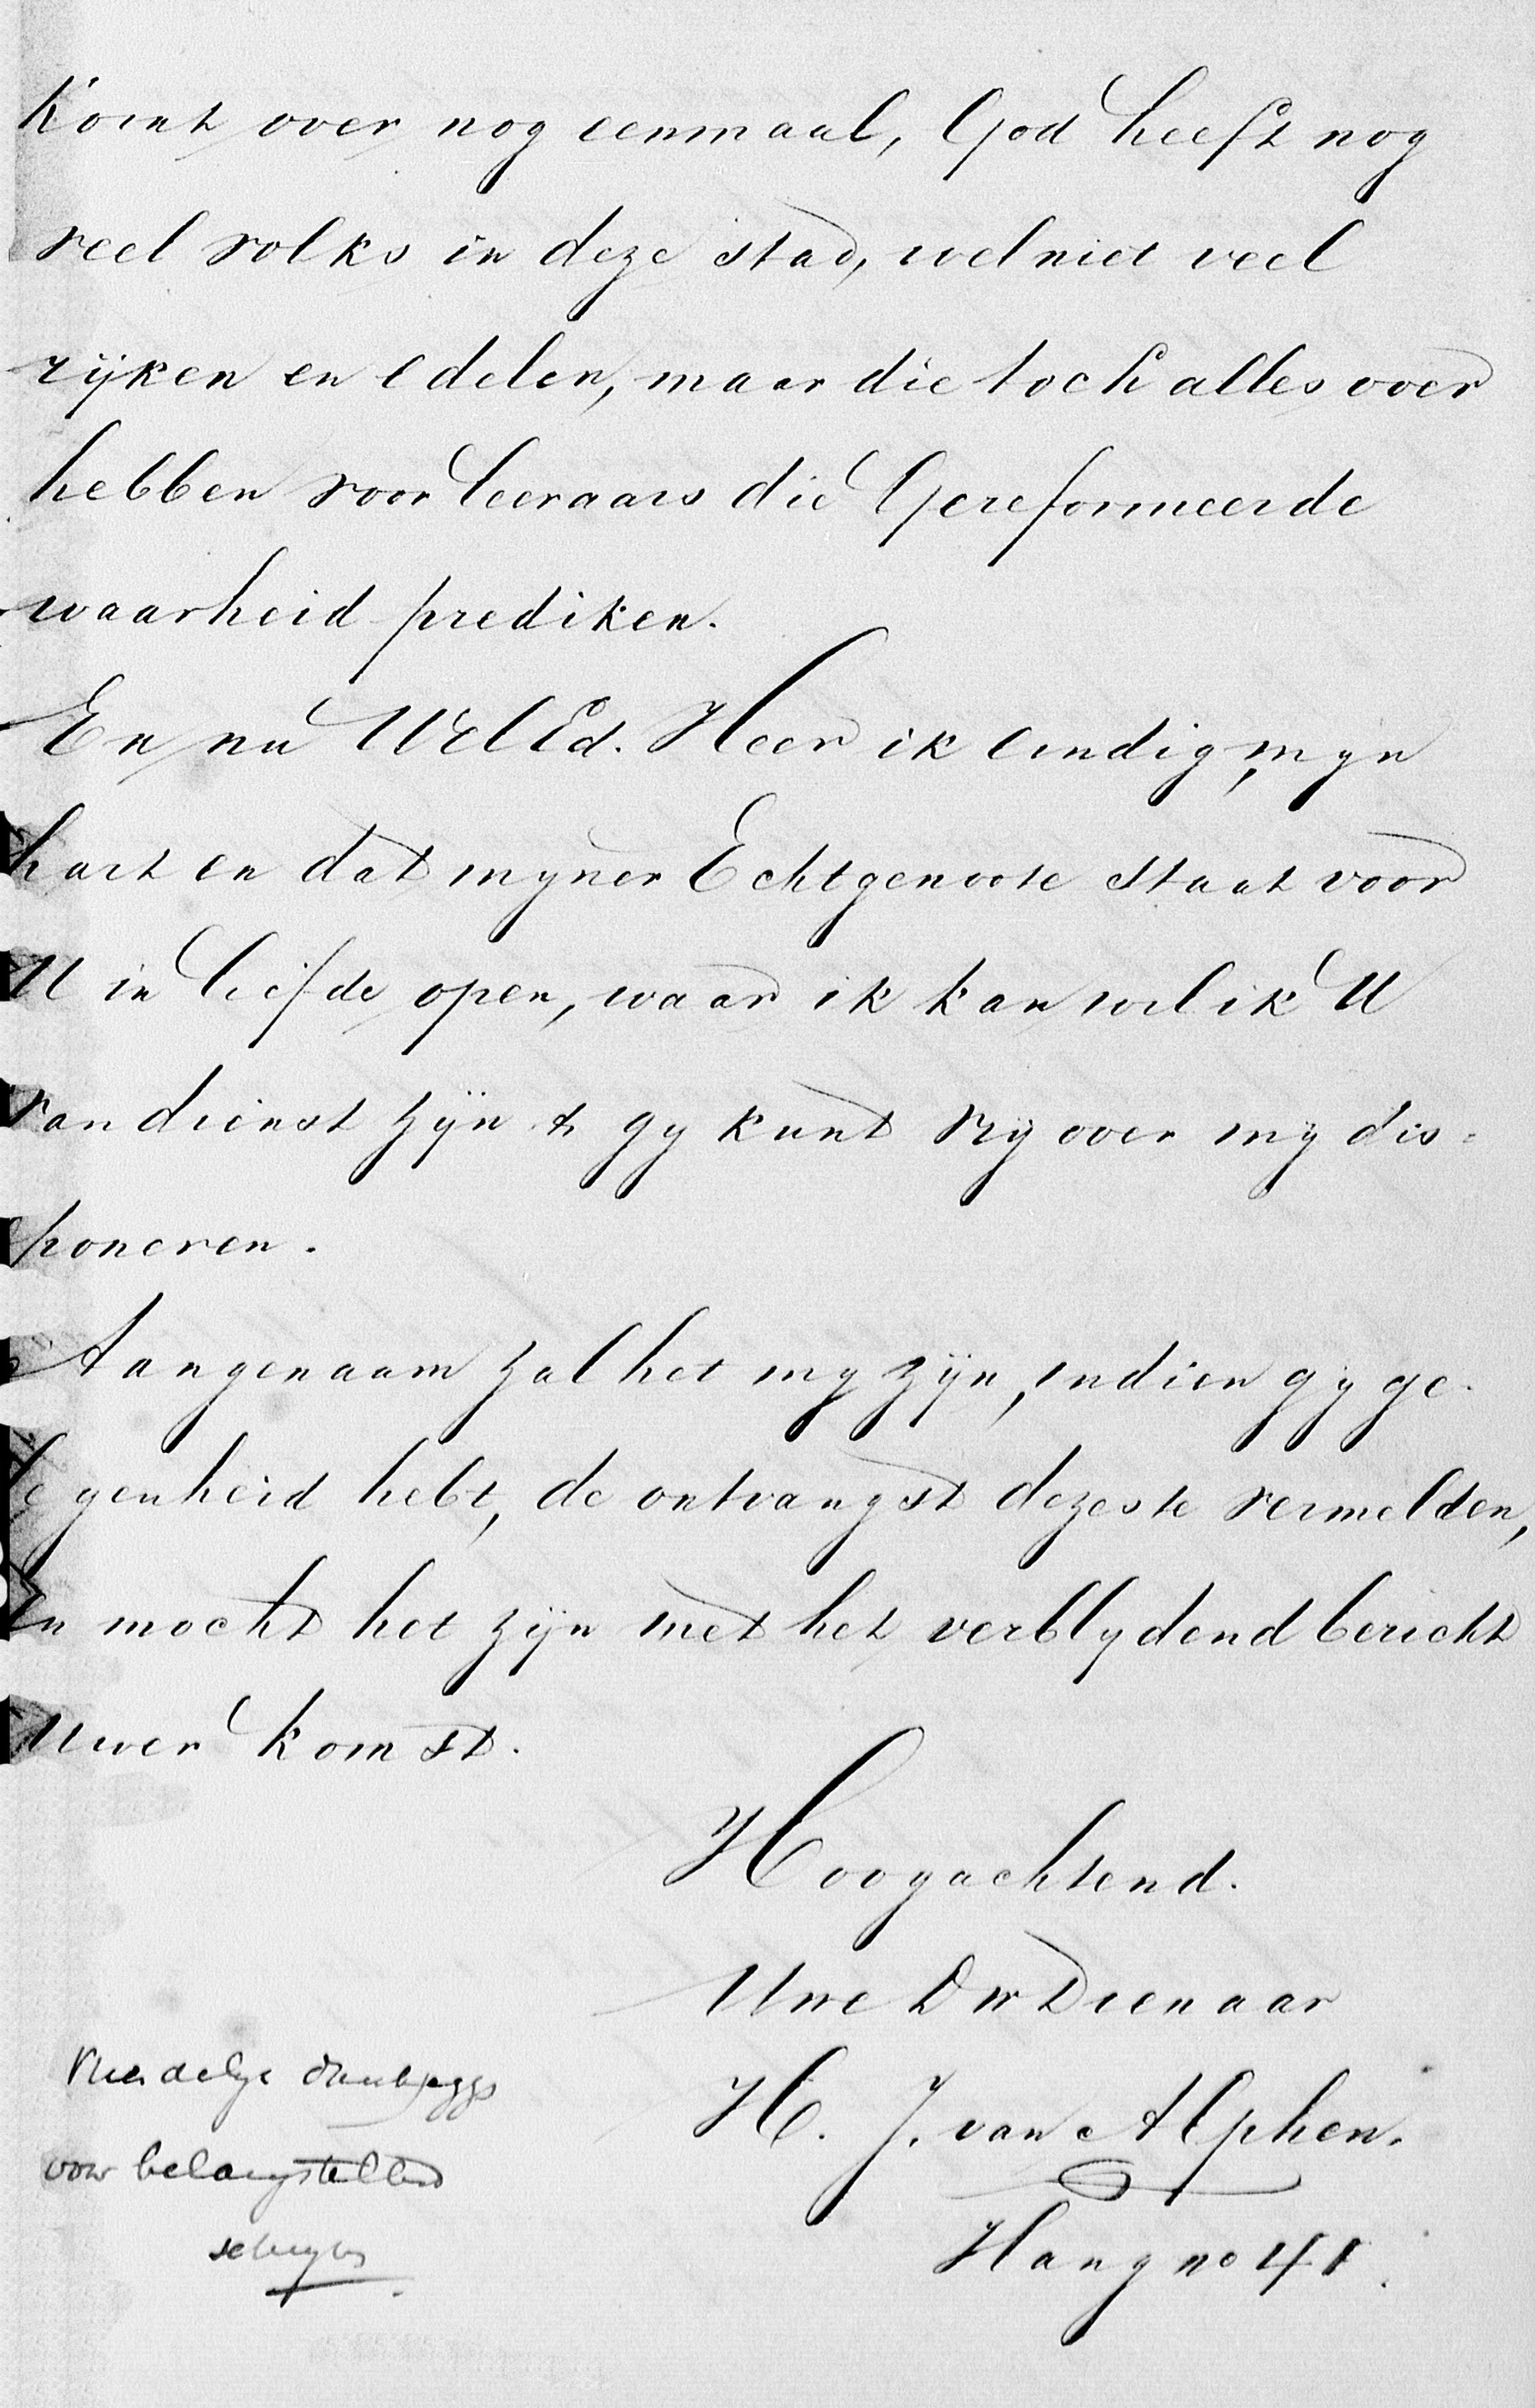 Komt over nog eenmaal, God heeft nog
veel volks in deze stad, wel niet veel
rijken en edelen, maar die toch alles over
hebben voor leeraars die Gereformeerde
waarheid prediken.
En nu WelEd. Heer ik eindig, myn
hart en dat myner Echtgenoote staat voor
U in liefde open, waar ik kan wil ik U
van dienst zijn & gy kunt vrij over mij dis-
poneren.
Aangenaam zal het my zijn, indien gij ge-
legenheid hebt, de ontvangst dezes te vermelden,
en mocht het zijn met het verblydend bericht
uwer komst.
Hoogachtend.
Uwe Dw Dienaar
H. J. van Alphen.
Hang no 41.
voor belangstellend
schryven